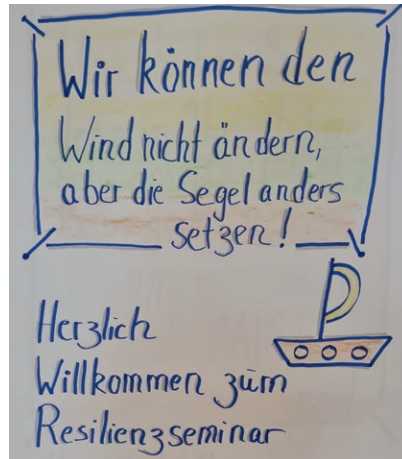 Wir können den
Wind nicht ändern,
aber die Segel anders
setzen!
Herzlich
Willkommen zum
Resilienzseminar